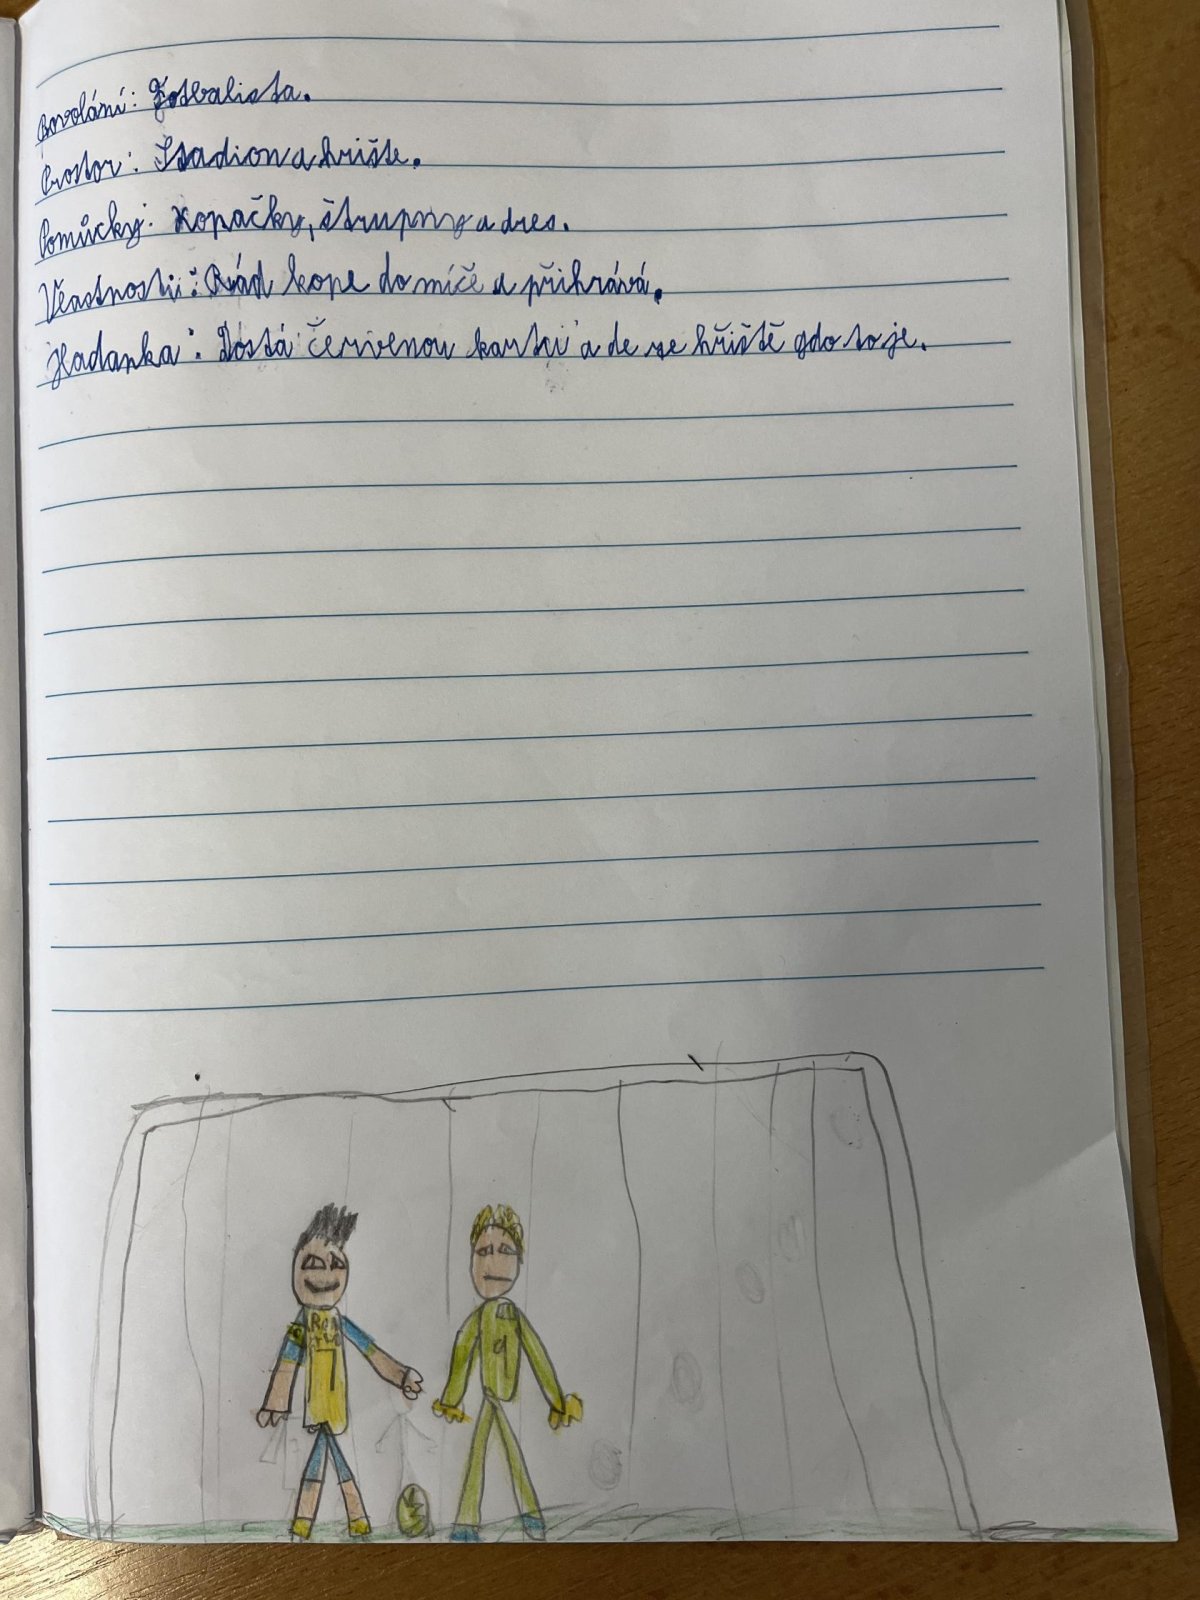 Povolání: Fotbalista.
Prostor: Stadion a hrište.
Pomůcky: Kopačky, štrupny a dres.
Vlastnosti: Rád kope do míče a přihrává.
Hadanka: Dostá červenou kartu a de ze hřiště gdo to je.
7
9